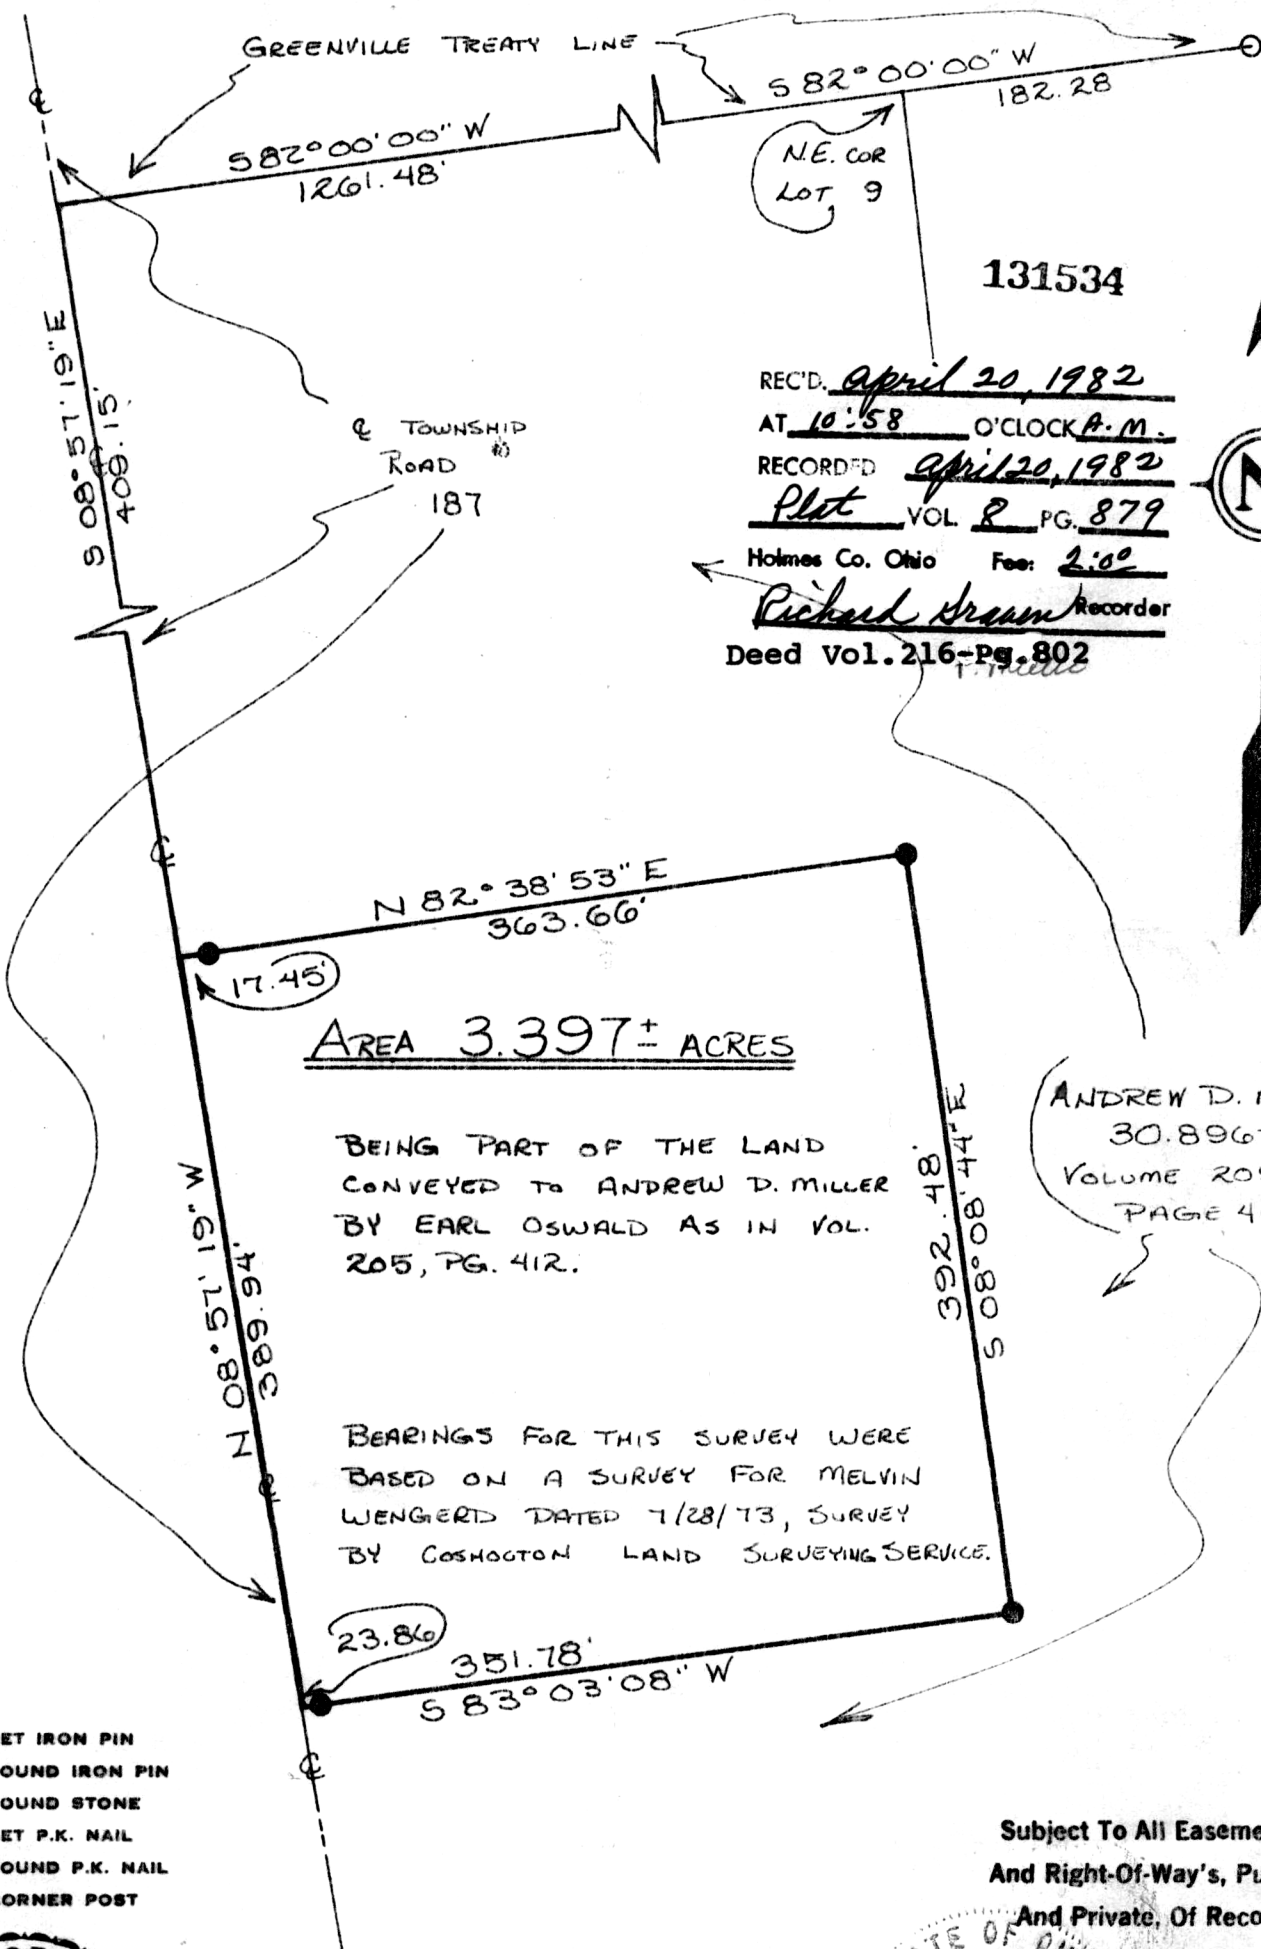 GREENVILLE TREATY LINE
S 82° 00' 00" W
182.28
S 82° 00' 00" W
1261.48'
N.E. COR
LOT 9
131534
S 08° 57' 19" E
409.15'
REC'D. April 20, 1982
AT 10:58 O'CLOCK A.M.
RECORDED April 20, 1982
Plat VOL. 8 PG. 879
Holmes Co. Ohio Fee: 2.00
Richard Recorder
Deed Vol.216-Pg.802
℄ TOWNSHIP
ROAD
187
N
N 82° 38' 53" E
363.66'
17.45'
AREA 3.397± ACRES
BEING PART OF THE LAND
CONVEYED TO ANDREW D. MILLER
BY EARL OSWALD AS IN VOL.
205, PG. 412.
N 08° 57' 19" W
389.94'
392.48'
S 08° 08' 44" E
ANDREW D.
30.896
VOLUME 20
PAGE 4
BEARINGS FOR THIS SURVEY WERE
BASED ON A SURVEY FOR MELVIN
WENGERD DATED 7/28/73, SURVEY
BY COSHOCTON LAND SURVEYING SERVICE.
23.86
351.78'
S 83° 03' 08" W
ET IRON PIN
OUND IRON PIN
OUND STONE
ET P.K. NAIL
OUND P.K. NAIL
ORNER POST
Subject To All Easeme
And Right-Of-Way's, Pu
And Private, Of Reco
TE OF